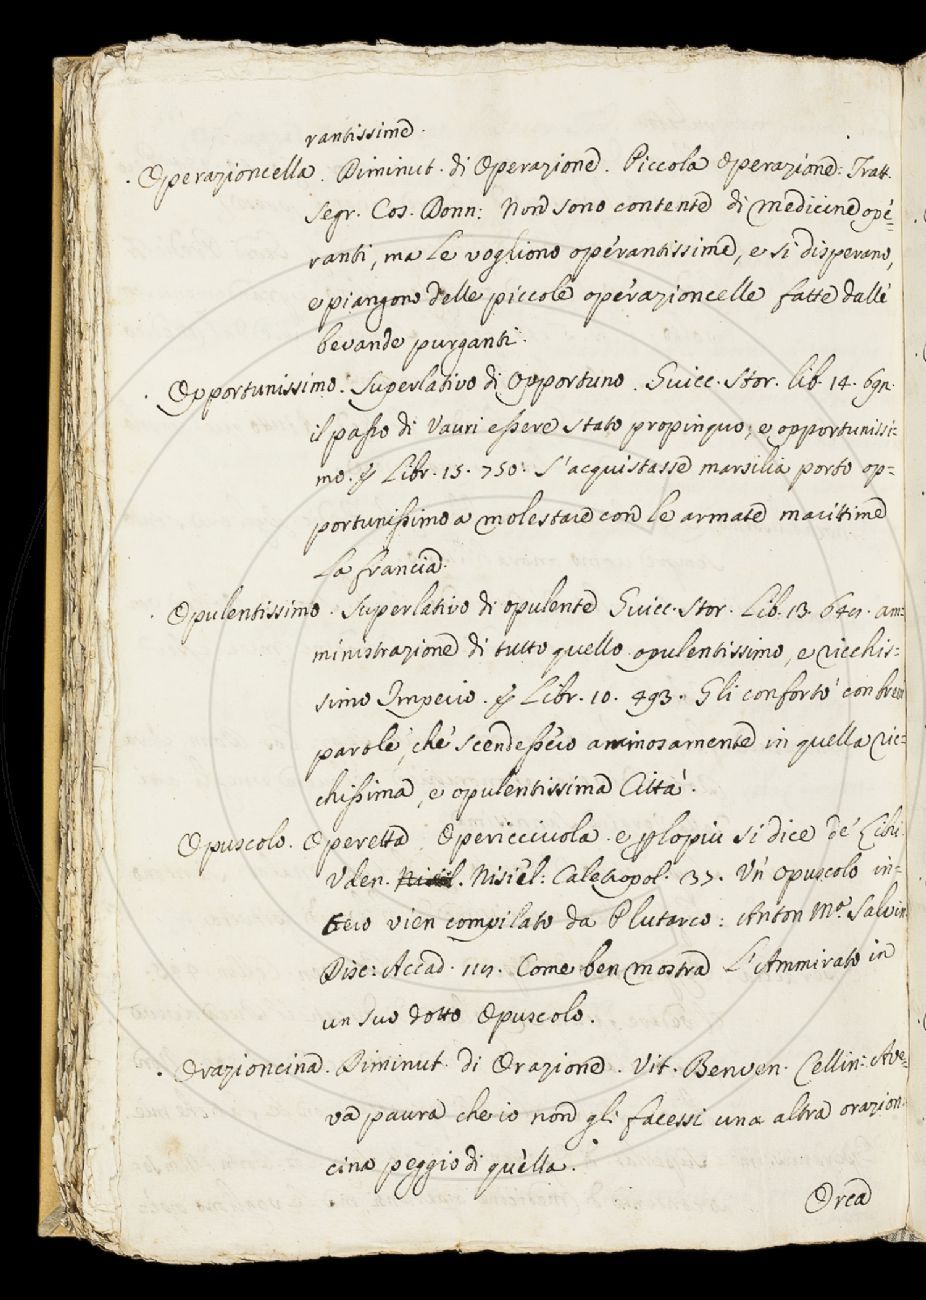 rantissime.
Operazioncella. Diminut. di Operazione. Piccola operazione: Tratt.
segr. Cos. Donn: Non sono contente di medicine ope=
ranti, ma le vogliono operantissime, e si disperano,
e piangono delle piccole operazioncelle fatte dalle
bevande purganti.
Opportunissimo. Superlativo di Opportuno. Guicc. Stor. lib. 14. 691.
il passo di Vauri essere stato propinquo, e opportunissi=
mo. Libr. 15. 750. S'acquistasse marsilia porto op=
portunissimo a molestare con le armate marittime
la francia.
Opulentissimo. Superlativo di opulente Guicc. Stor. Lib. 13. am=
ministrazione di tutto quello opulentissimo, e ricchis=
simo Imperio. Libr. 10. 493. Gli confortò con brevi
parole, che scendessero animosamente in quella ric=
chissima, e opulentissima Città.
Opuscolo. Operetta, Opericciuola. e p lo più si dice de' Libri
Uden. Nisiel: 37. Un opuscolo in=
tero vien compilato da Plutarco: Anton Mª. Salvin.
Disc: Accad. 119. Come ben mostra L'Ammirato in
un suo dotto Opuscolo.
Orazioncina. Diminut. di Orazione. Vit. Benven. Cellin: Ave=
va paura che io non gli facessi una altra orazion=
cina peggio di quella.
Orca